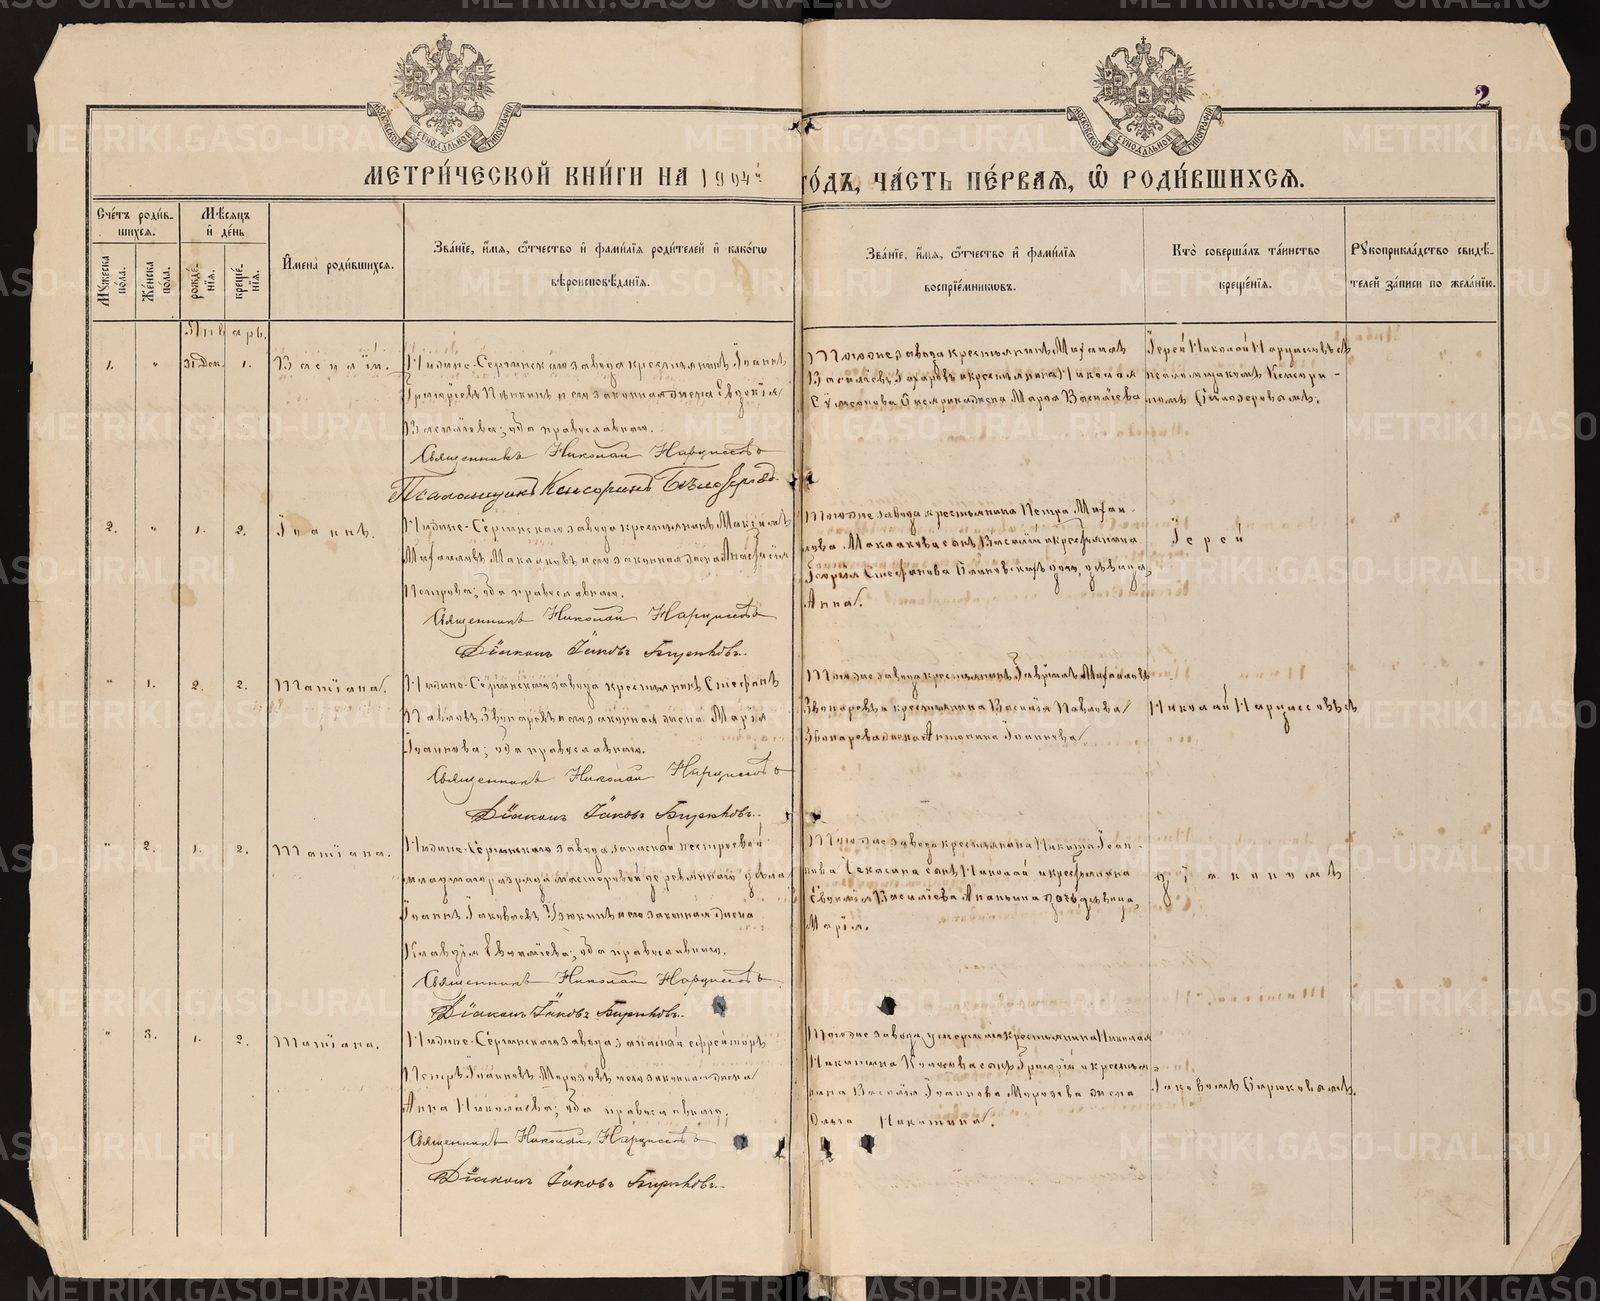 2
МЕТРИ́ЧЕСКОЙ КНИ́ГИ НА 1904й ГО́ДЪ, ЧА́СТЬ ПЕ́РВАЯ, Ѡ҆ РОДИ́ВШИХСЯ.
Сче́тъ роди́вшихся.
Му́жеска по́ла.
Же́нска по́ла.
Мѣ́сяцъ и҆ де́нь
рожде́нїя.
креще́нїя.
И҆мена̀ роди́вшихся.
Зва́нїе, и҆́мя, ѻ҆́тчество и҆ фами́лїя роди́телей и҆ како́гѡ
вѣроисповѣ́данїя.
Зва́нїе, и҆́мя, ѻ҆́тчество и҆ фами́лїя
воспрїе́мниковъ.
Кто̀ соверша́лъ та́инство
креще́нїя.
Рꙋкоприкла́дство свидѣ́-
телей за́писи по жела́нїю.
Январь.
1. " 31 Дек. 1. Василій.
Нижне-Сергинскаго завода крестьянинъ Іоаннъ
Григоріевъ и его законная жена Евдокія
Васильева; оба православные.
Священникъ Николай Нарциссовъ
Псаломщикъ Кенсоринъ Бѣлозеровъ
Тогоже завода крестьянинъ Михаилъ
Василіевъ и крестьянина Николая
жена Марія Василіева
Іерей Николай Нарциссовъ съ
псаломщикомъ Кенсори-
номъ Бѣлозеровымъ.
2. " 1. 2. Іоаннъ.
Нижне-Сергинскаго завода крестьянинъ Максимъ
Михаиловъ и его законная жена Анастасія
Петрова; оба православные.
Священникъ Николай Нарциссовъ
Діаконъ Іаковъ Бирюковъ.
Тогоже завода крестьянина Петра Михаи-
лова сынъ Василій и крестьянина
Георгія Стефанова дочь, дѣвица
Анна.
Іерей
" 1. 2. 2. Татіана.
Нижне-Сергинскаго завода крестьянинъ Стефанъ
Павловъ и его законная жена Марія
Іоаннова; оба православные.
Священникъ Николай Нарциссовъ
Діаконъ Іаковъ Бирюковъ.
Тогоже завода крестьянинъ Гавріилъ Михаиловъ
и крестьянина Василія Павлова
жена Антонина Іоаннова
Николай Нарциссовъ съ
" 2. 1. 2. Татіана.
Нижне-Сергинскаго завода, запасный нестроевой
младшаго разряда мастеровой деревяннаго цеха
Іоаннъ Іаковлевъ и его законная жена
Клавдія Евѳиміева; оба православные.
Священникъ Николай Нарциссовъ
Діаконъ Іаковъ Бирюковъ.
Тогоже завода крестьянина Никиты Іоан-
нова сынъ Николай и крестьянина
Евѳимія Василіева дочь дѣвица,
Марія.
діакономъ
" 3. 1. 2. Татіана.
Нижне-Сергинскаго завода запасный ефрейторъ
Петръ Іоанновъ Морозовъ и его законная жена
Анна Николаева; оба православные;
Священникъ Николай Нарциссовъ
Діаконъ Іаковъ Бирюковъ.
Тогоже завода умершаго крестьянина Николая
Никитина сынъ Григорій и крестьян-
нина Василія Іоаннова Морозова жена
Ольга Никитина.
Іаковомъ Бирюковымъ.
METRIKI.GASO-URAL.RU